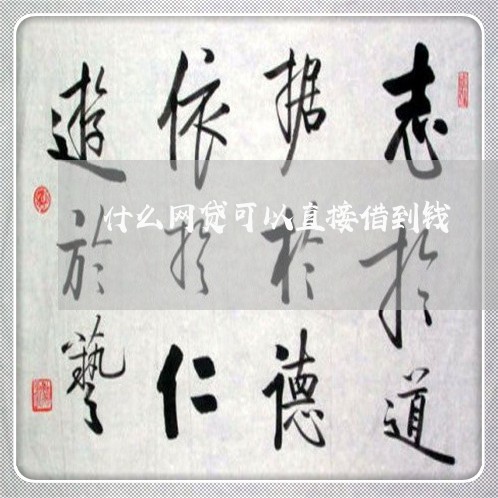 志於道
据於德
依於仁
遊於藝
什么网贷可以直接借到钱